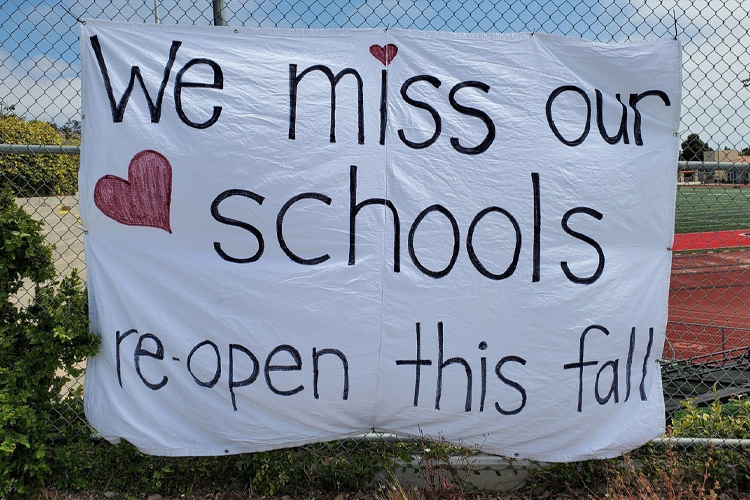 We miss our
schools
re-open this fall